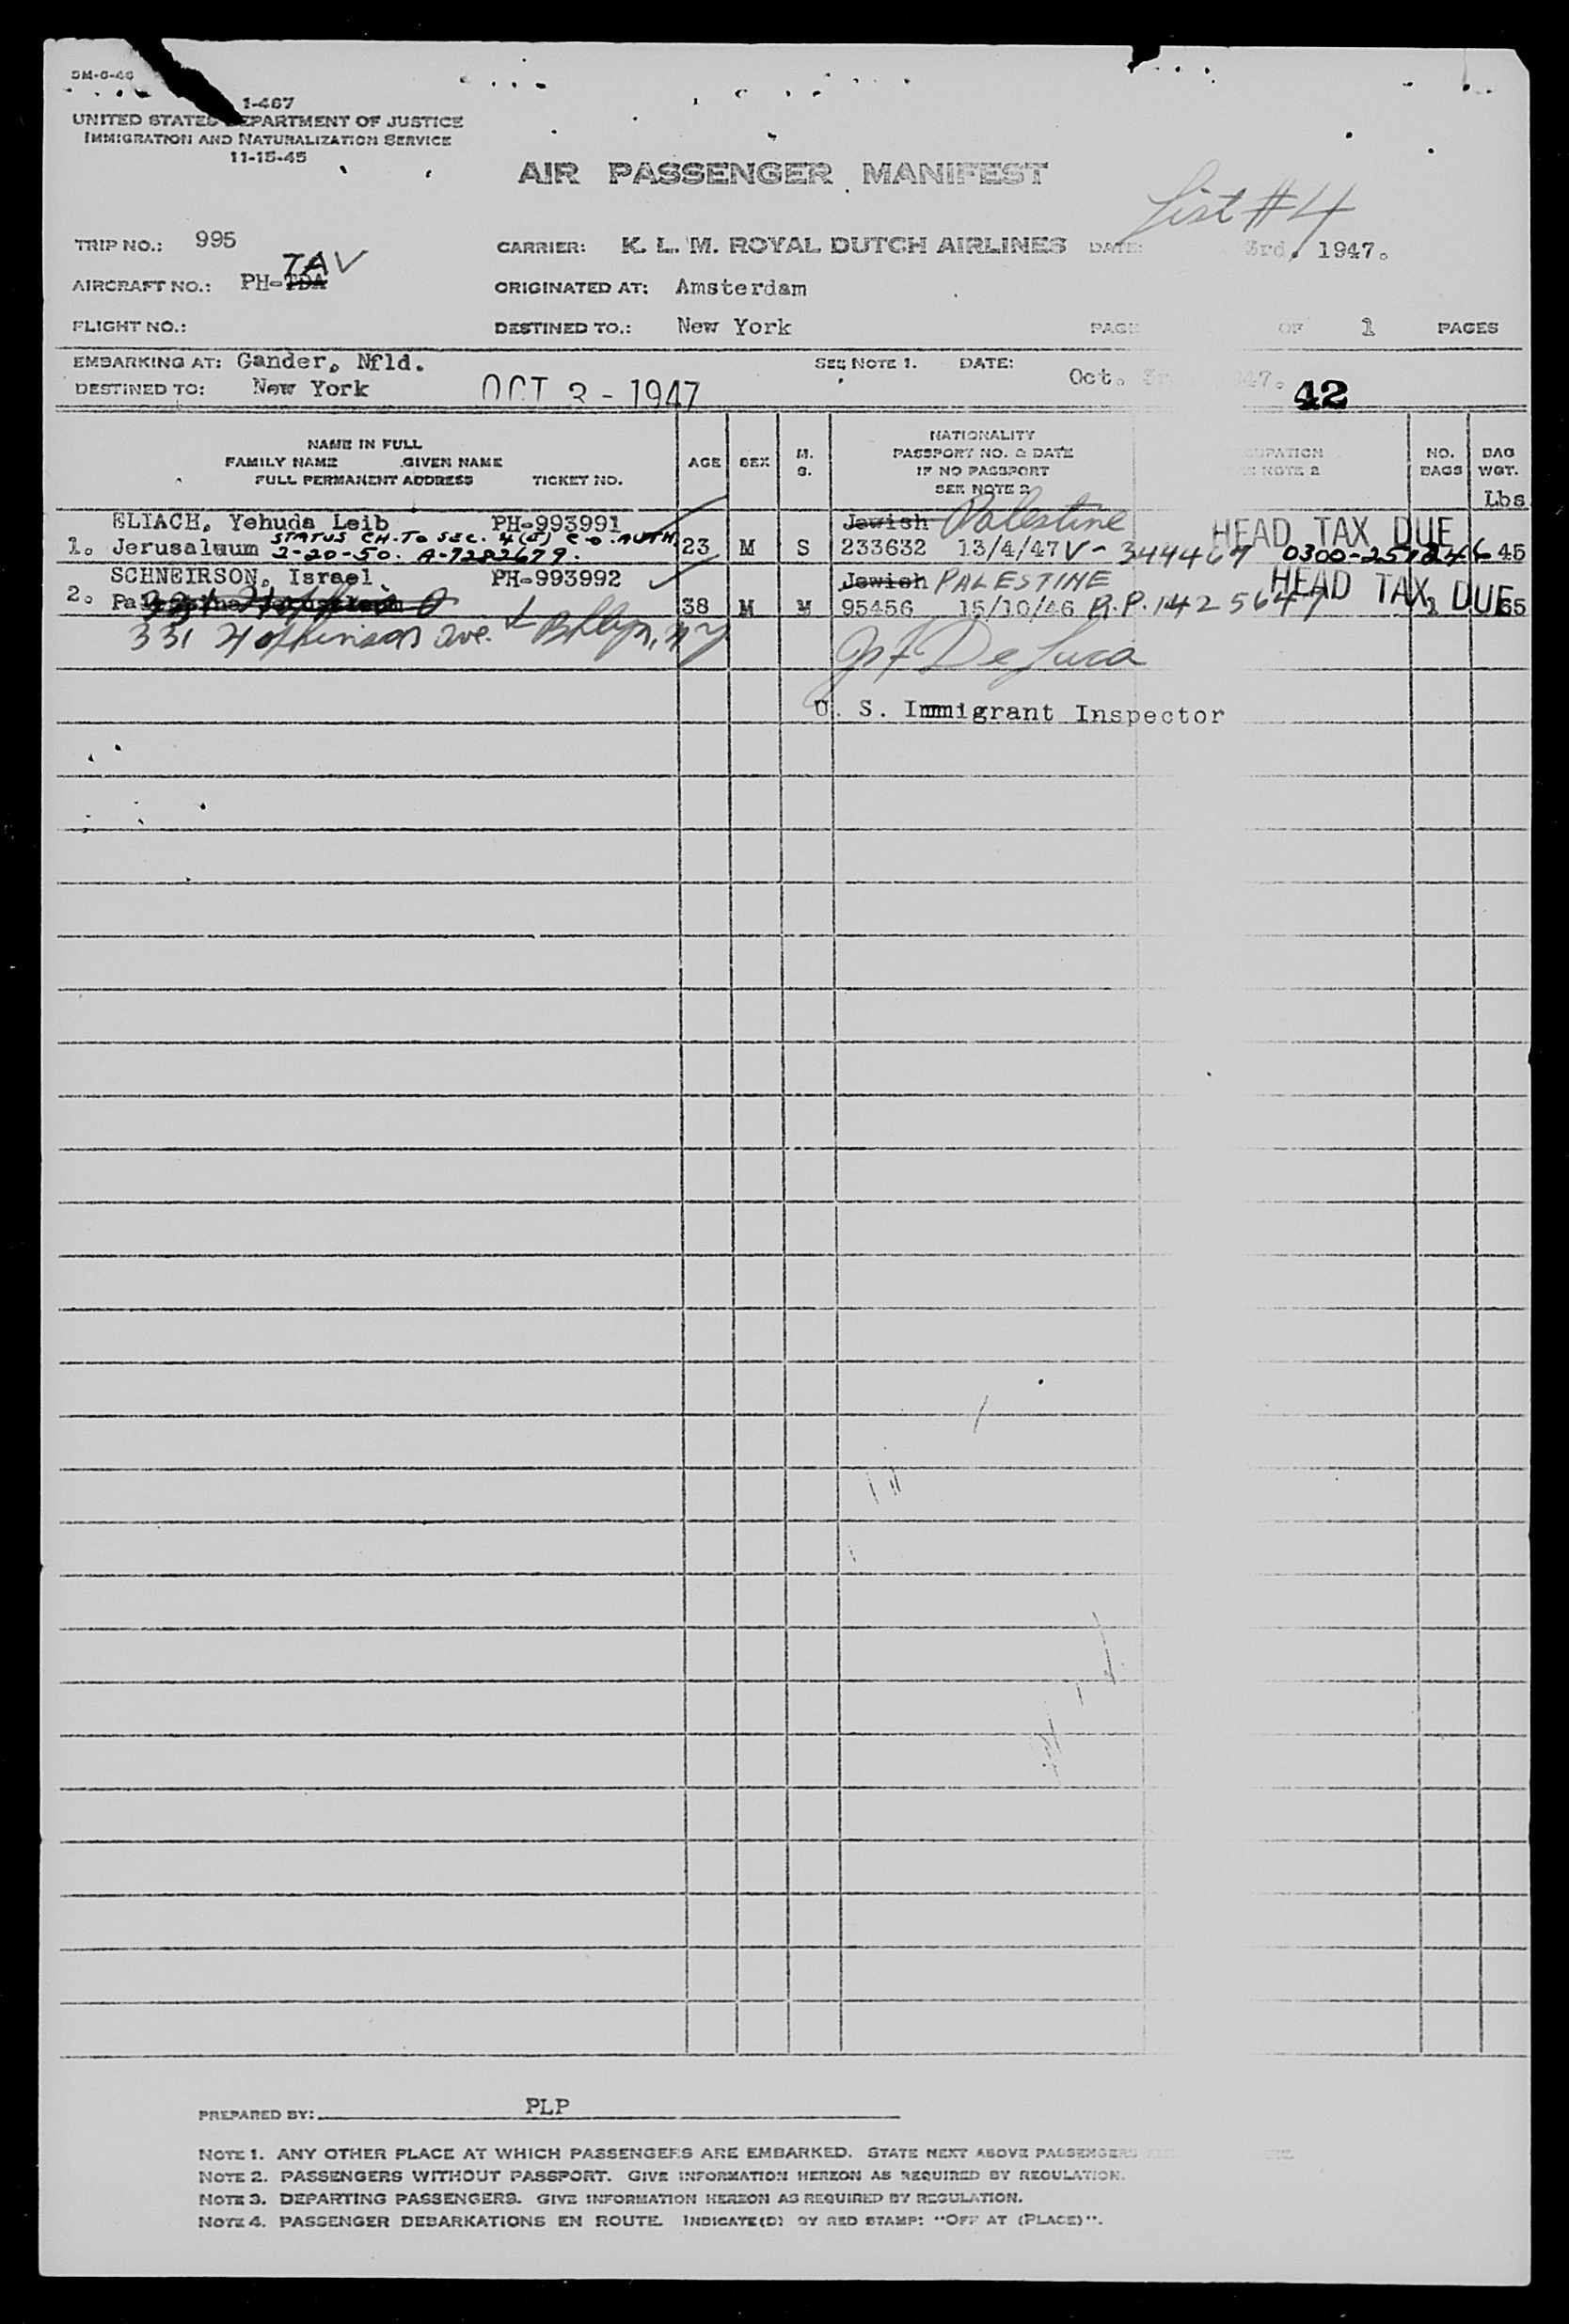 DM-6-46
1-467
UNITED STATES DEPARTMENT OF JUSTICE
IMMIGRATION AND NATURALIZATION SERVICE
11-15-45
AIR PASSENGER MANIFEST
List #4
TRIP NO.: 995
CARRIER: K. L. M. ROYAL DUTCH AIRLINES DATE: 3rd, 1947.
TAV
AIRCRAFT NO.: PH-TDA
ORIGINATED AT: Amsterdam
FLIGHT NO.:
DESTINED TO.: New York
PAGE OF 1 PAGES
EMBARKING AT: Gander, Nfld.
SEE NOTE 1. DATE: Oct.
DESTINED TO: New York
OCT 3 - 1947
42
NAME IN FULL
FAMILY NAME GIVEN NAME
FULL PERMANENT ADDRESS TICKET NO.
AGE SEX M. S.
NATIONALITY
PASSPORT NO. & DATE
IF NO PASSPORT
SEE NOTE 2
NO. BAGS
BAG WGT.
Lbs
ELIACH, Yehuda Leib PH-993991 Jewish Palestine HEAD TAX DUE
STATUS CH. TO SEC. 4(e) C-O. AUTH.
1. Jerusalaum 3-20-50. A-7282679. 23 M S 233632 13/4/47 V-344467 45
SCHNEIRSON, Israel PH-993992 Jewish PALESTINE HEAD TAX DUE
2. 38 M M 95456 15/10/46 R.P. 1425647 65
331 Hopkinson ave. Bklyn, NY
De Luca
U. S. Immigrant Inspector
PREPARED BY: PLP
NOTE 1. ANY OTHER PLACE AT WHICH PASSENGERS ARE EMBARKED. STATE NEXT ABOVE PASSENGERS
NOTE 2. PASSENGERS WITHOUT PASSPORT. GIVE INFORMATION HEREON AS REQUIRED BY REGULATION.
NOTE 3. DEPARTING PASSENGERS. GIVE INFORMATION HEREON AS REQUIRED BY REGULATION.
NOTE 4. PASSENGER DEBARKATIONS EN ROUTE. INDICATE(D) BY RED STAMP: "OFF AT (PLACE)".